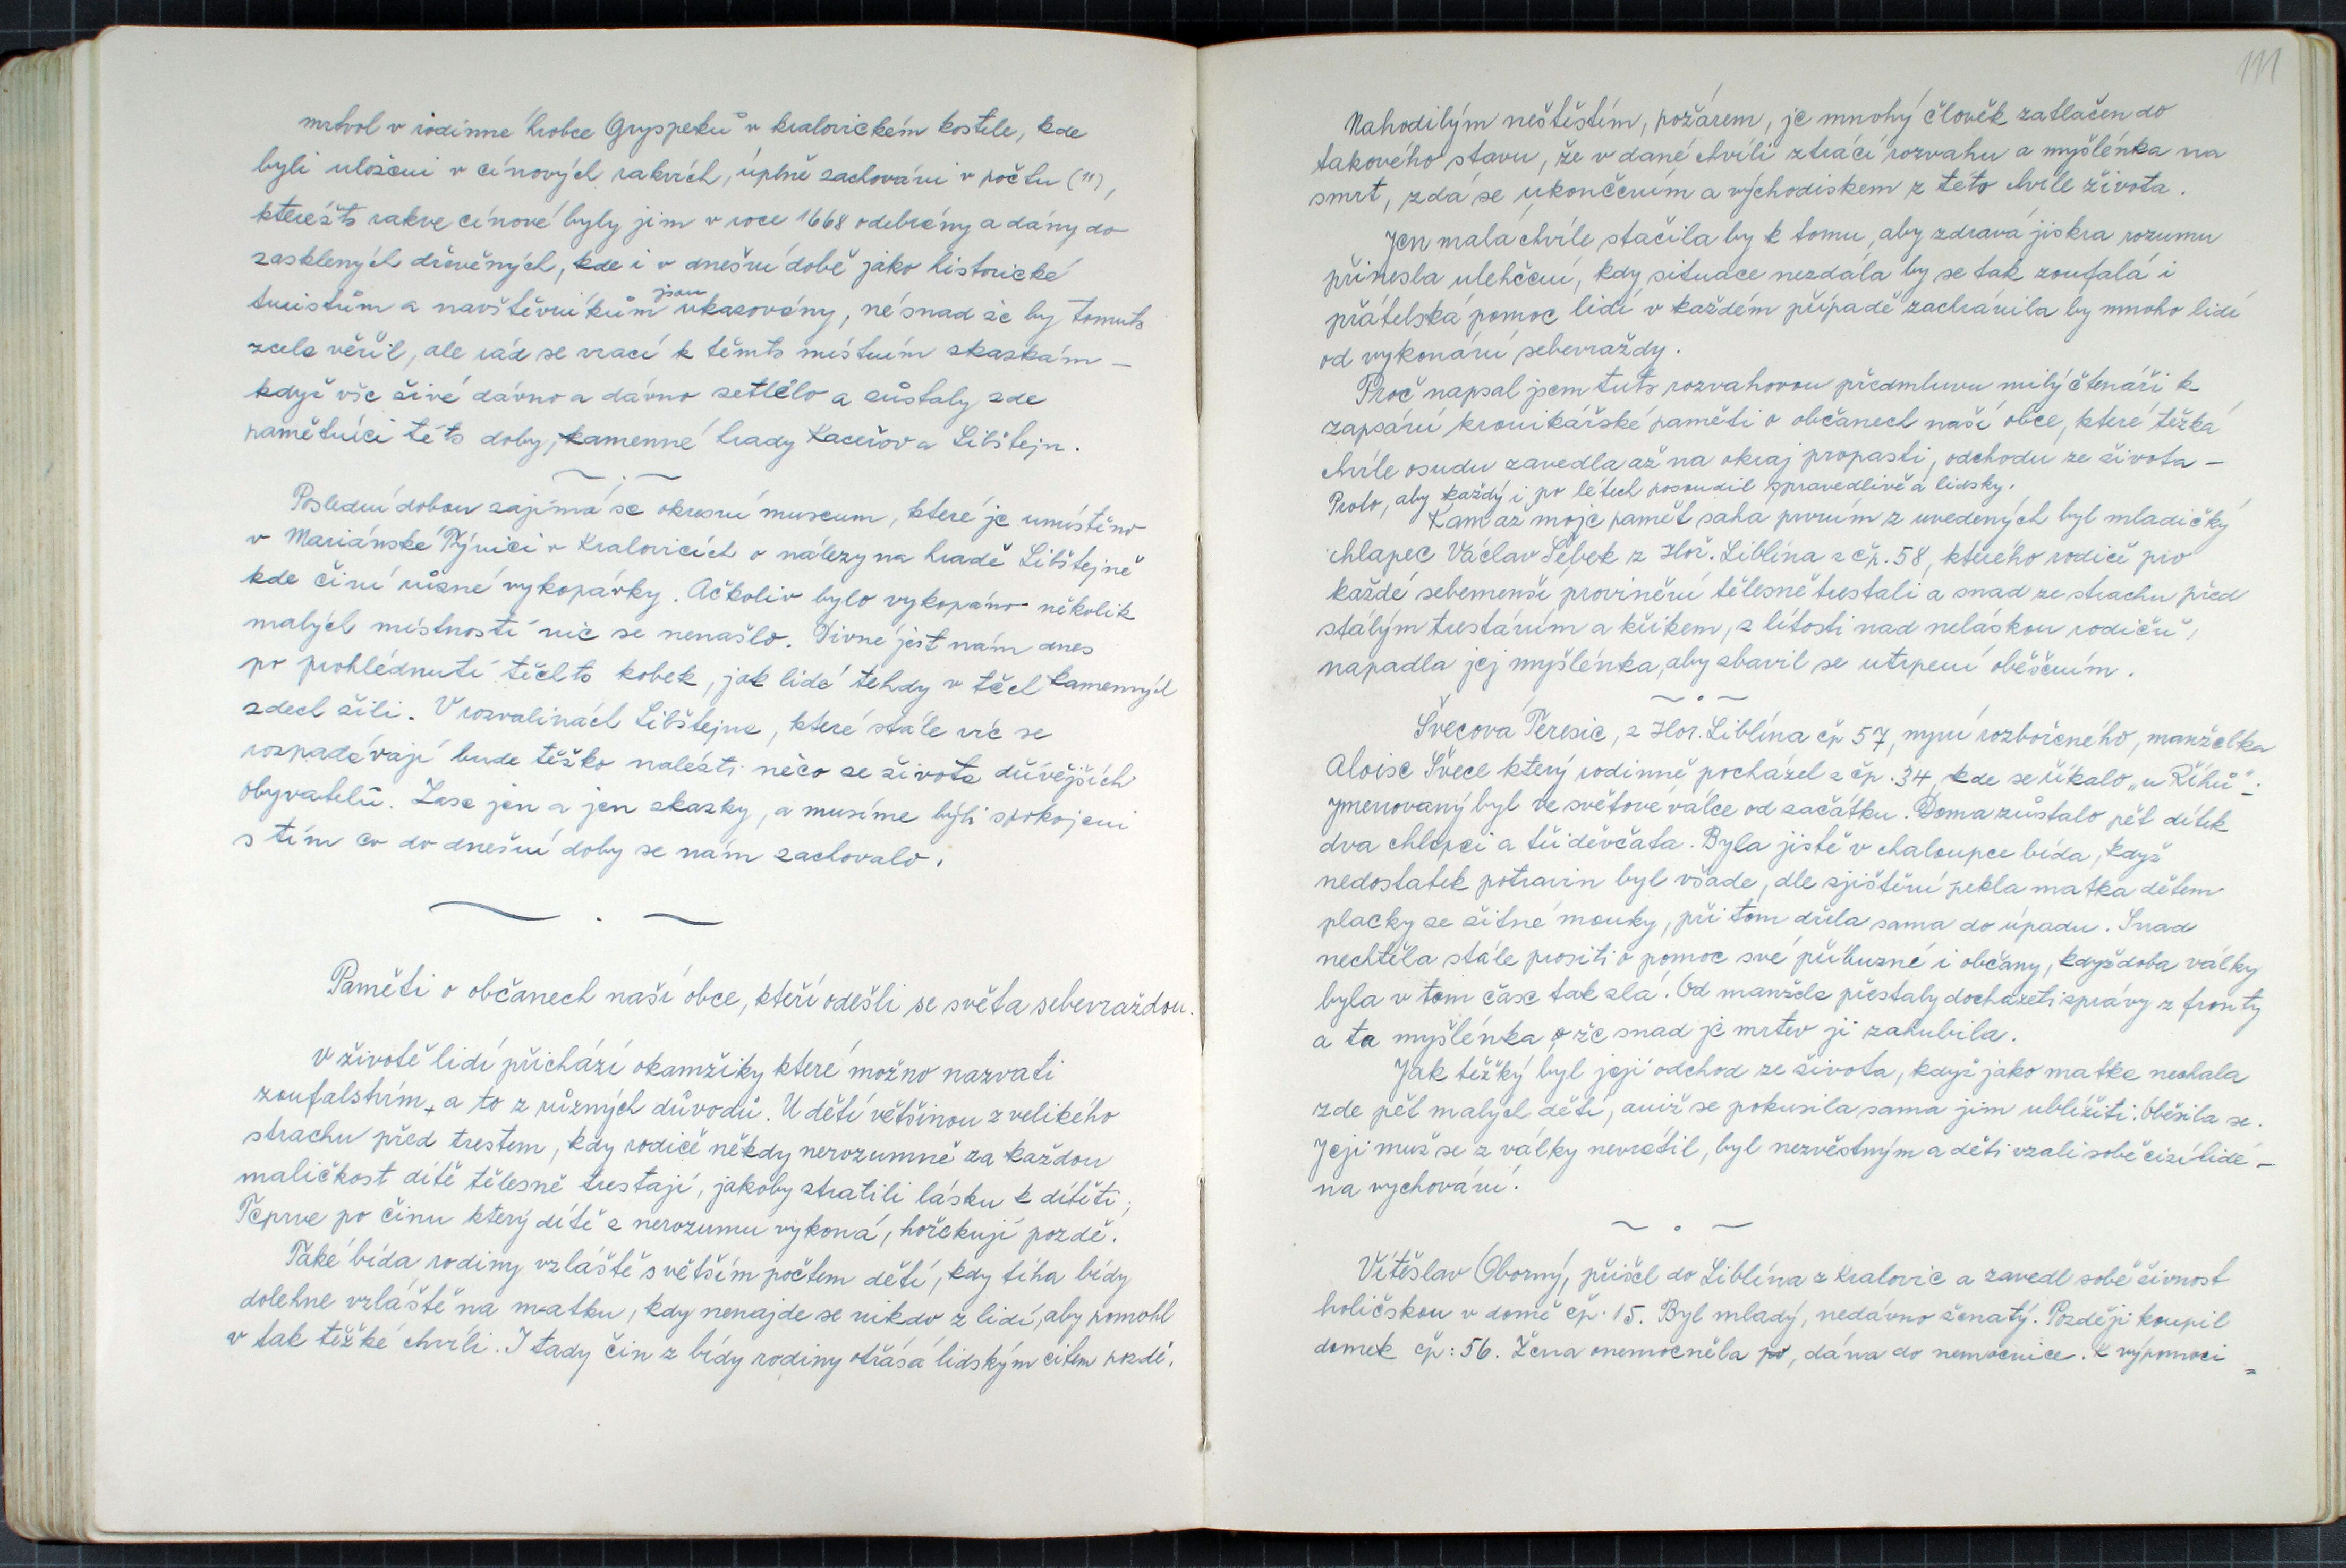 mrtvol v rodinné hrobce Gryspeků v kralovickém kostele, kde
byli uloženi v cínových rakvích, úplně zachováni v počtu (11),
kteréžto rakve cínové byly jim v roce 1668 odebrány a dány do
zasklených dřevěných, kde i v dnešní době jako historické
turistům a navštěvníkům jsou ukazovány, né snad že by tomuto
zcela věřil, ale rád se vrací k těmto místním zkazkám –
když vše živé dávno a dávno setlélo a zůstaly zde
pamětníci této doby, kamenné hrady Kaceřov a Libštejn.
Poslední dobou zajímá se okresní museum, které je umístěno
v Mariánské Týnici v Kralovicích o nálezy na hradě Libštejně
kde činí různé vykopávky. Ačkoliv bylo vykopáno několik
malých místností nic se nenašlo. Divné jest nám dnes
po prohlédnutí těchto kobek, jak lidé tehdy v těch kamenných
zdech žili. V rozvalinách Libštejna, které stále víc se
rozpadávají bude těžko nalézti něco ze života dřívějších
obyvatelů. Zase jen a jen zkazky, a musíme býti spokojeni
s tím co do dnešní doby se nám zachovalo.
Paměti o občanech naší obce, kteří odešli se světa sebevraždou.
V životě lidí přichází okamžiky které možno nazvati
zoufalstvím, a to z různých důvodů. U dětí většinou z velikého
strachu před trestem, kdy rodiče někdy nerozumně za každou
maličkost dítě tělesně trestají, jakoby ztratili lásku k dítěti;
Teprve po činu který dítě z nerozumu vykoná, hořekují pozdě.
Také bída rodiny vzláště s větším počtem dětí, kdy tíha bídy
dolehne vzláště na matku, kdy nenajde se nikdo z lidí, aby pomohl
v tak těžké chvíli. I tady čin z bídy rodiny otřásá lidským citem pozdě.
111
Nahodilým neštěstím, požárem, je mnohý člověk zatlačen do
takového stavu, že v dané chvíli ztrácí rozvahu a myšlénka na
smrt, zdá se ukončením a východiskem z této chvíle života.
Jen malá chvíle stačila by k tomu, aby zdravá jiskra rozumu
přinesla ulehčení, kdy situace nezdála by se tak zoufalá i
přátelská pomoc lidí v každém případě zachránila by mnoho lidí
od vykonání sebevraždy.
Proč napsal jsem tuto rozvahovou předmluvu milý čtenáři k
zapsání kronikářské paměti o občanech naší obce, které těžká
chvíle osudu zavedla až na okraj propasti, odchodu ze života –
Proto, aby každý i po létech posoudil spravedlivě a lidsky.
Kam až moje paměť sahá prvním z uvedených byl mladičký
chlapec Václav Šebek z Hoř. Liblína z čp. 58, kterého rodiče pro
každé sebemenší provinění tělesně trestali a snad ze strachu před
stálým trestáním a křikem, z lítosti nad neláskou rodičů,
napadla jej myšlénka, aby zbavil se utrpení oběšením.
Švecová Terezie, z Hor. Liblína čp 57, nyní rozbořeného, manželka
Aloise Švece který rodinně pocházel z čp. 34, kde se říkalo „u Říhů".
Jmenovaný byl ve světové válce od začátku. Doma zůstalo pět dítek
dva chlapci a tři děvčata. Byla jistě v chaloupce bída, když
nedostatek potravin byl všade, dle zjištění pekla matka dětem
placky ze žitné mouky, při tom dřela sama do úpadu. Snad
nechtěla stále prositi o pomoc své příbuzné i občany, když doba války
byla v tom čase tak zlá. Od manžela přestaly docházeti zprávy z fronty
a ta myšlénka, že snad je mrtev ji zahubila.
Jak těžký byl její odchod ze života, když jako matka nechala
zde pět malých dětí, aniž se pokusila sama jim ublížiti. Oběsila se.
Její muž se z války nevrátil, byl nezvěstným a děti vzali sobě cizí lidé –
na vychování.
Vítěslav Oborný, přišel do Liblína z Kralovic a zavedl sobě živnost
holičskou v domě čp. 15. Byl mladý, nedávno ženatý. Později koupil
domek čp: 56. Žena onemocněla, dána do nemocnice. K výpomoci =